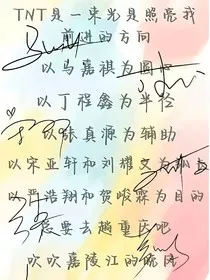 TNT是一束光是照亮我
前进的方向
以马嘉祺为圆心
以丁程鑫为半径
以张真源为辅助
以宋亚轩和刘耀文为
以严浩翔和贺峻霖为目的
总要去趟重庆吧
吹吹嘉陵江的晚风